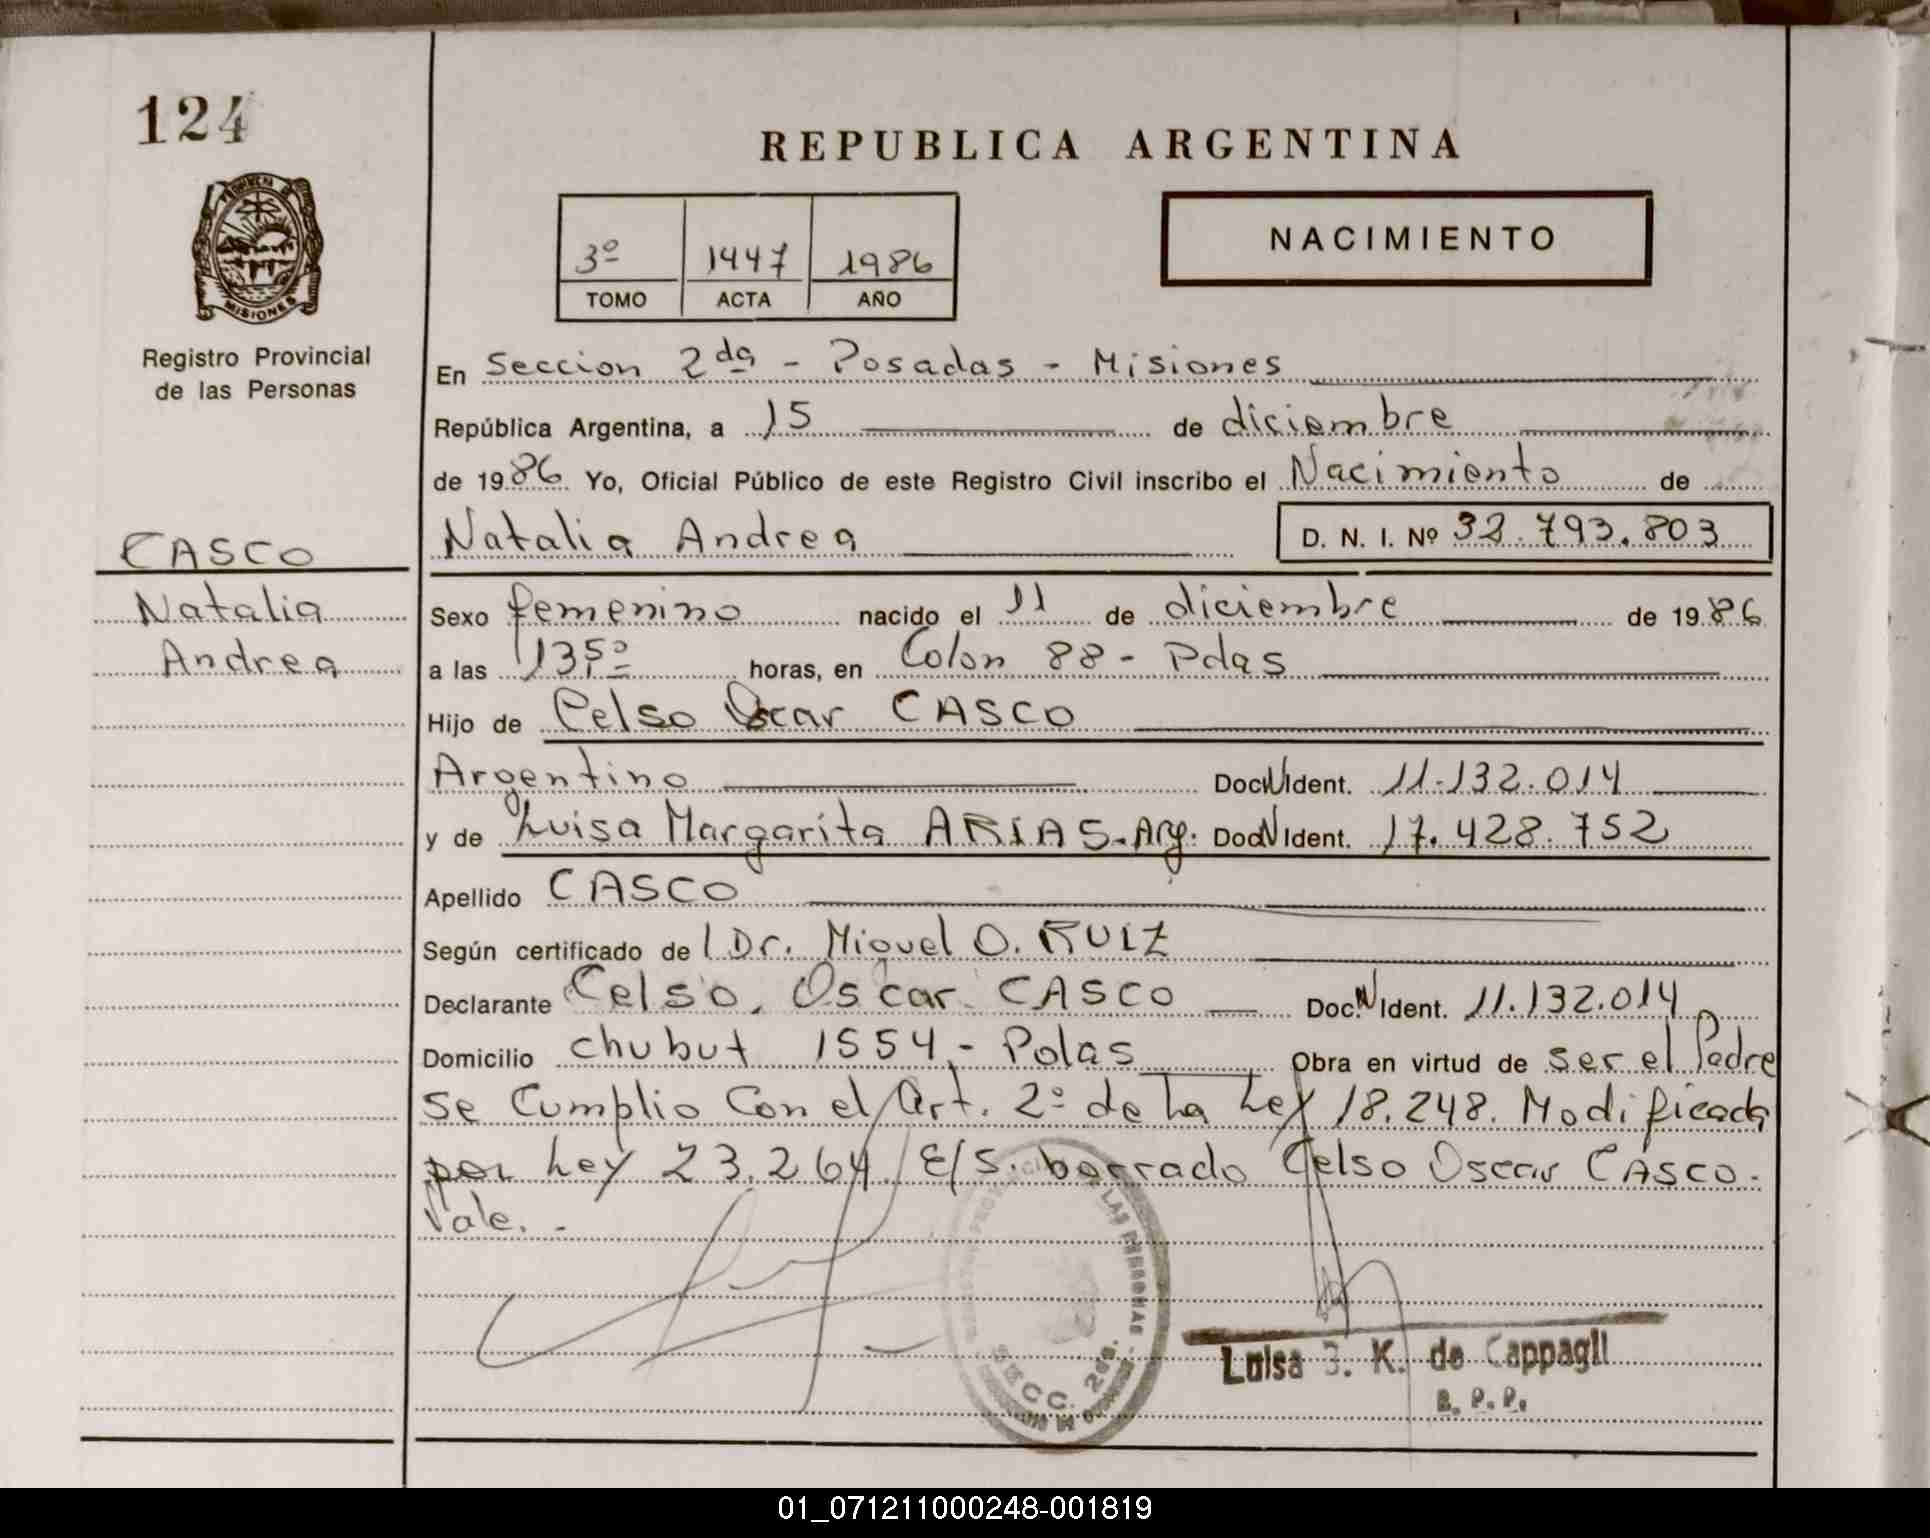 124
REPUBLICA ARGENTINA
PROVINCIA DE
MISIONES
Registro Provincial
de las Personas
3º 1447 1986
TOMO ACTA AÑO
NACIMIENTO
En Seccion 2da - Posadas - Misiones
República Argentina, a 15 de diciembre
de 1986 Yo, Oficial Público de este Registro Civil inscribo el Nacimiento de
Natalia Andrea D. N. I. Nº 32.793.803
CASCO
Natalia
Andrea
Sexo femenino nacido el 11 de diciembre de 1986
a las 13,50 horas, en Colon 88 - Pdas
Hijo de Celso Oscar CASCO
Argentino Doc.N.Ident. 11.132.014
y de Luisa Margarita ARIAS-Arg. Doc.N.Ident. 17.428.752
Apellido CASCO
Según certificado del Dr. Miguel O. RUIZ
Declarante Celso Oscar CASCO Doc.N.Ident. 11.132.014
Domicilio chubut 1554 - Pdas Obra en virtud de ser el Padre
se Cumplio Con el Art. 2º de La Ley 18.248. Modificada
por Ley 23.264. E/S. borrado Celso Oscar CASCO.
Vale.
LAS PERSONAS
SECC. 2da.
Luisa K. de Cappagli
01_071211000248-001819